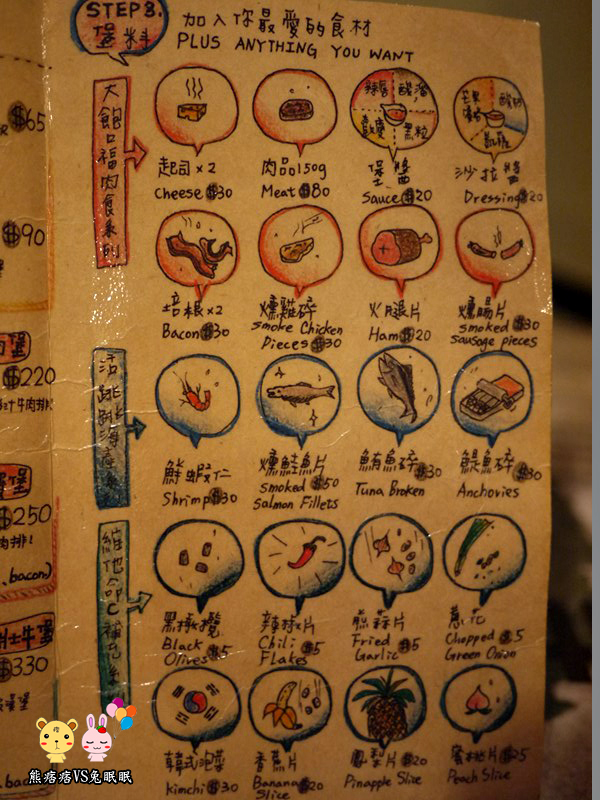 $65
$90
$220
$250
, bacon)
$330
bacon
STEP 3.
堡料
加入你最愛的食材
PLUS ANYTHING YOU WANT
大飽口福肉食系列
起司x2
Cheese $30
肉品150g
Meat $80
堡醬
Sauce $20
沙拉醬
Dressing $20
培根x2
Bacon $30
燻雞碎
smoke Chicken
Pieces $30
火腿片
Ham $20
燻腸片
smoked $30
sausage pieces
活跳跳海產系
鮮蝦仁
Shrimp $30
燻鮭魚片
Smoked $50
Salmon Fillets
鮪魚碎 $30
Tuna Broken
鯷魚碎 $30
Anchovies
維他命C補充系
黑橄欖
Black
Olives $5
辣椒片
Chili
Flakes $5
煎蒜片
Fried
Garlic $5
蔥花
Chopped $5
Green Onion
韓式泡菜
Kimchi $30
香蕉片
Banana $20
Slice
鳳梨片 $20
Pinapple Slice
蜜桃片 $25
Peach Slice
熊痞痞VS兔眠眠